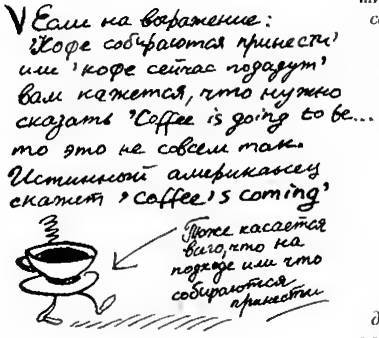 V Если на выражение:
'Кофе собираются принести'
или 'кофе сейчас подадут'
вам кажется, что нужно
сказать 'Coffee is going to be...
то это не совсем так.
Истинный американец
скажет 'coffee is coming'
Тоже касается
всего, что на
подходе или что
собираются
принести